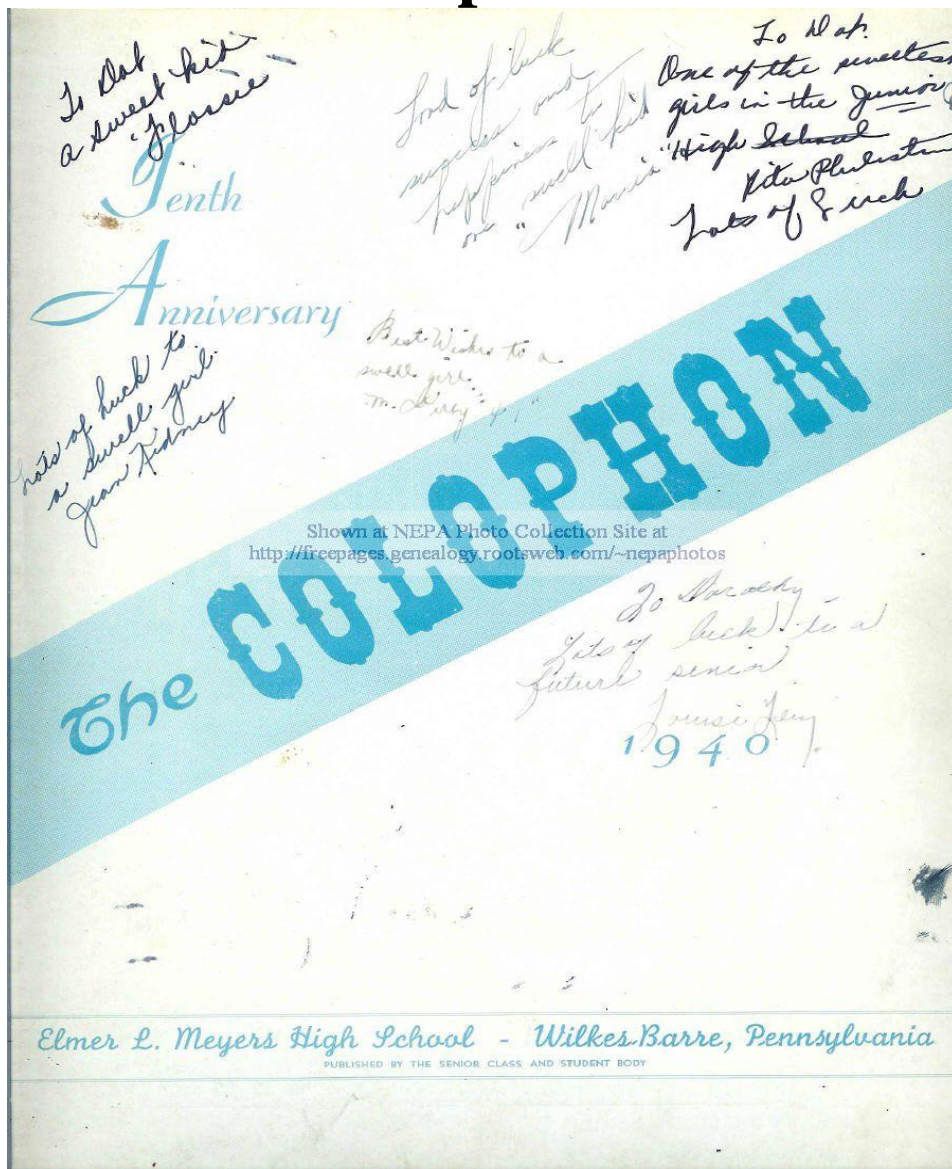 To Dot
a sweet kid
"Flossie"
Lord of luck
success and
happiness to
one swell kid
"Maria"
To Dot.
One of the sweetest
girls in the Junior
"High School
Rita
Lots of Luck
Tenth
Anniversary
Best Wishes to a
swell girl.
Lots of luck to
a swell girl.
Jean Kidney
The COLOPHON
Shown at NEPA Photo Collection Site at
http://freepages.genealogy.rootsweb.com/~nepaphotos
To Dorothy
Lots of luck to a
future senior
Louise
1940
Elmer L. Meyers High School - Wilkes-Barre, Pennsylvania
PUBLISHED BY THE SENIOR CLASS AND STUDENT BODY